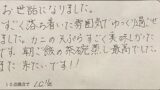 お世話になりました。
すごく落ち着いた雰囲気でゆっくり過ごせ
ました。カニの天ぷらすごく美味しかった
です。朝ご飯の茶碗蒸し最高でした。
また来たいです!!